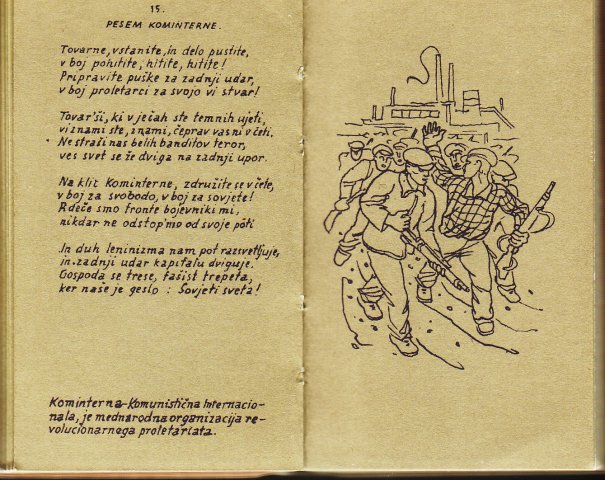 15.
PESEM KOMINTERNE.
Tovarne, vstanite, in delo pustite,
v boj pohitite, hitite, hitite!
Pripravite puške za zadnji udar,
v boj proletarci za svojo vi stvar!
Tovar'ši, ki v ječah ste temnih ujeti,
vi z nami ste, z nami, čeprav vas ni v četi.
Ne straši nas belih banditov teror,
ves svet se že dviga na zadnji upor.
Na klic Kominterne, združite se v čete,
v boj za svobodo, v boj za sovjete!
Rdeče smo fronte bojevniki mi,
nikdar ne odstop'mo od svoje poti
In duh leninizma nam pot razsvetljuje,
in zadnji udar kapitalu dviguje.
Gospoda se trese, fašist trepeta,
ker naše je geslo : Sovjeti sveta!
Kominterna-Komunistična Internacio-
nala, je mednarodna organizacija re-
volucionarnega proletariata.